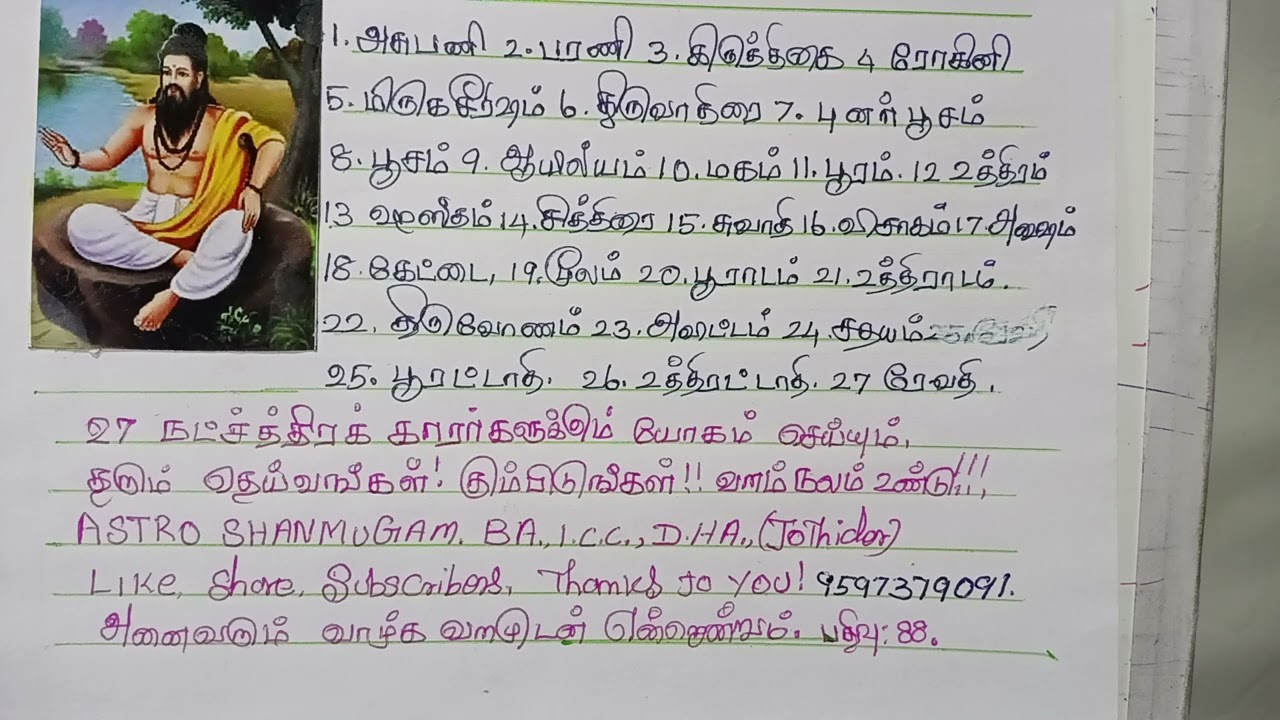 1. அசுபணி 2. பரணி 3. கிருத்திகை 4 ரோகினி
5. மிருகசீரிஷம் 6. திருவாதிரை 7. புனர் பூசம்
8. பூசம் 9. ஆயில்யம் 10. மகம் 11. பூரம். 12 உத்திரம்
13 ஹஸ்தம் 14. சித்திரை 15. சுவாதி 16. விசாகம் 17. அனுஷம்
18. கேட்டை, 19. மூலம் 20. பூராடம் 21. உத்திராடம்.
22. திருவோணம் 23. அவிட்டம் 24. சதயம்
25. பூரட்டாதி. 26. உத்திரட்டாதி. 27 ரேவதி.
27 நட்ச்த்திரக் காரர்களுக்கும் யோகம் செய்யும்,
தரும் தெய்வங்கள்! கும்பிடுங்கள்!! வளம் நலம் உண்டு!!!
ASTRO SHANMUGAM. BA., I.C.C., D.HA., (JoThider)
LIKE, Share, Subscribers, Thanks to YOU! 9597379091.
அனைவரும் வாழ்க வளமுடன் என்றென்றும். பதிவு: 88.